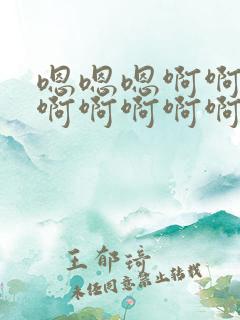 嗯嗯嗯啊啊
啊啊啊啊啊
王郁琦
未经同意禁止转载